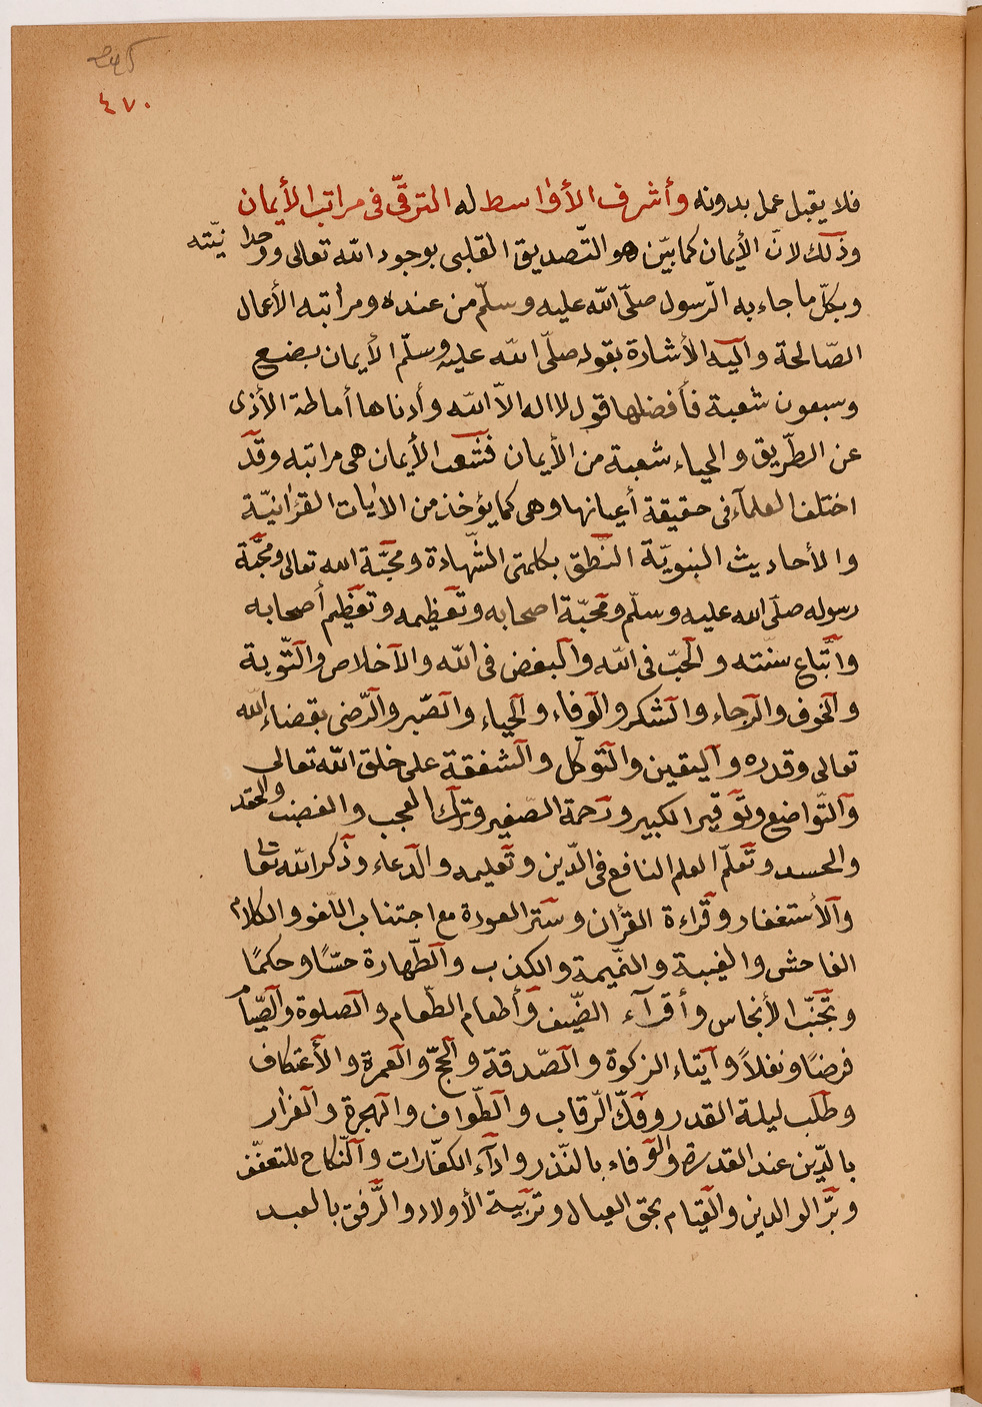 ٤٧٠
فلا يقبل عمل بدونه وأشرف الأواسط له الترقّى فى مراتب الأيمان
وذلك لانّ الأيمان كما بيّن هو التّصديق القلبى بوجود الله تعالى ووحدانيّته
وبكلّ ما جاء به الرّسول صلّى الله عليه وسلّم من عنده ومراتبه الأعمال
الصّالحة واليه الأشارة بقوله صلّى الله عليه وسلّم الأيمان بضع
وسبعون شعبة فأفضلها قول لا اله الاّ الله وأدناها أماطة الأذى
عن الطّريق والحياء شعبة من الأيمان فشعب الأيمان هى مراتبه وقد
اختلف العلمآء فى حقيقة أعيانها وهى كما يؤخذ من الأيات القرأنيّة
والأحاديث النبويّة النّطق بكلمتى الشّهادة ومحبّة الله تعالى ومحبّة
رسوله صلّى الله عليه وسلّم ومحبّة اصحابه وتعظيمه وتعظيم أصحابه
واتّباع سنّته والحبّ فى الله والبغض فى الله والأخلاص والتّوبة
والخوف والرجاء والشكر والوفاء والحياء والصّبر والرّضى بقضاء الله
تعالى وقدره واليقين والتوكّل والشفقة على خلق الله تعالى
والتّواضع وتوقير الكبير ورحمة الصّغير وترك العجب والغضب والحقد
والحسد وتعلّم العلم النافع فى الدّين وتعليمه والدّعاء وذكر الله تعالى
والأستغفار وقراءة القرأن وستر العورة مع اجتناب اللّغو والكلام
الفاحش والغيبة والنّميمة والكذب والطّهارة حسّاً وحكمًا
وتجنّب الأنجاس وأقرآء الضّيف وأطعام الطّعام والصلوة والصّيام
فرضًا ونفلاً وايتاء الزكوة والصّدقة والحجّ والعمرة والأعتكاف
وطلب ليلة القدر وفكّ الرّقاب والطّواف والهجرة والفرار
بالدّين عند القدرة والوفاء بالنّذر وادآء الكفّارات والنّكاح للتعفّف
وبرّ الوالدين والقيام بحق العيال وتربية الأولاد والرّفق بالعبد